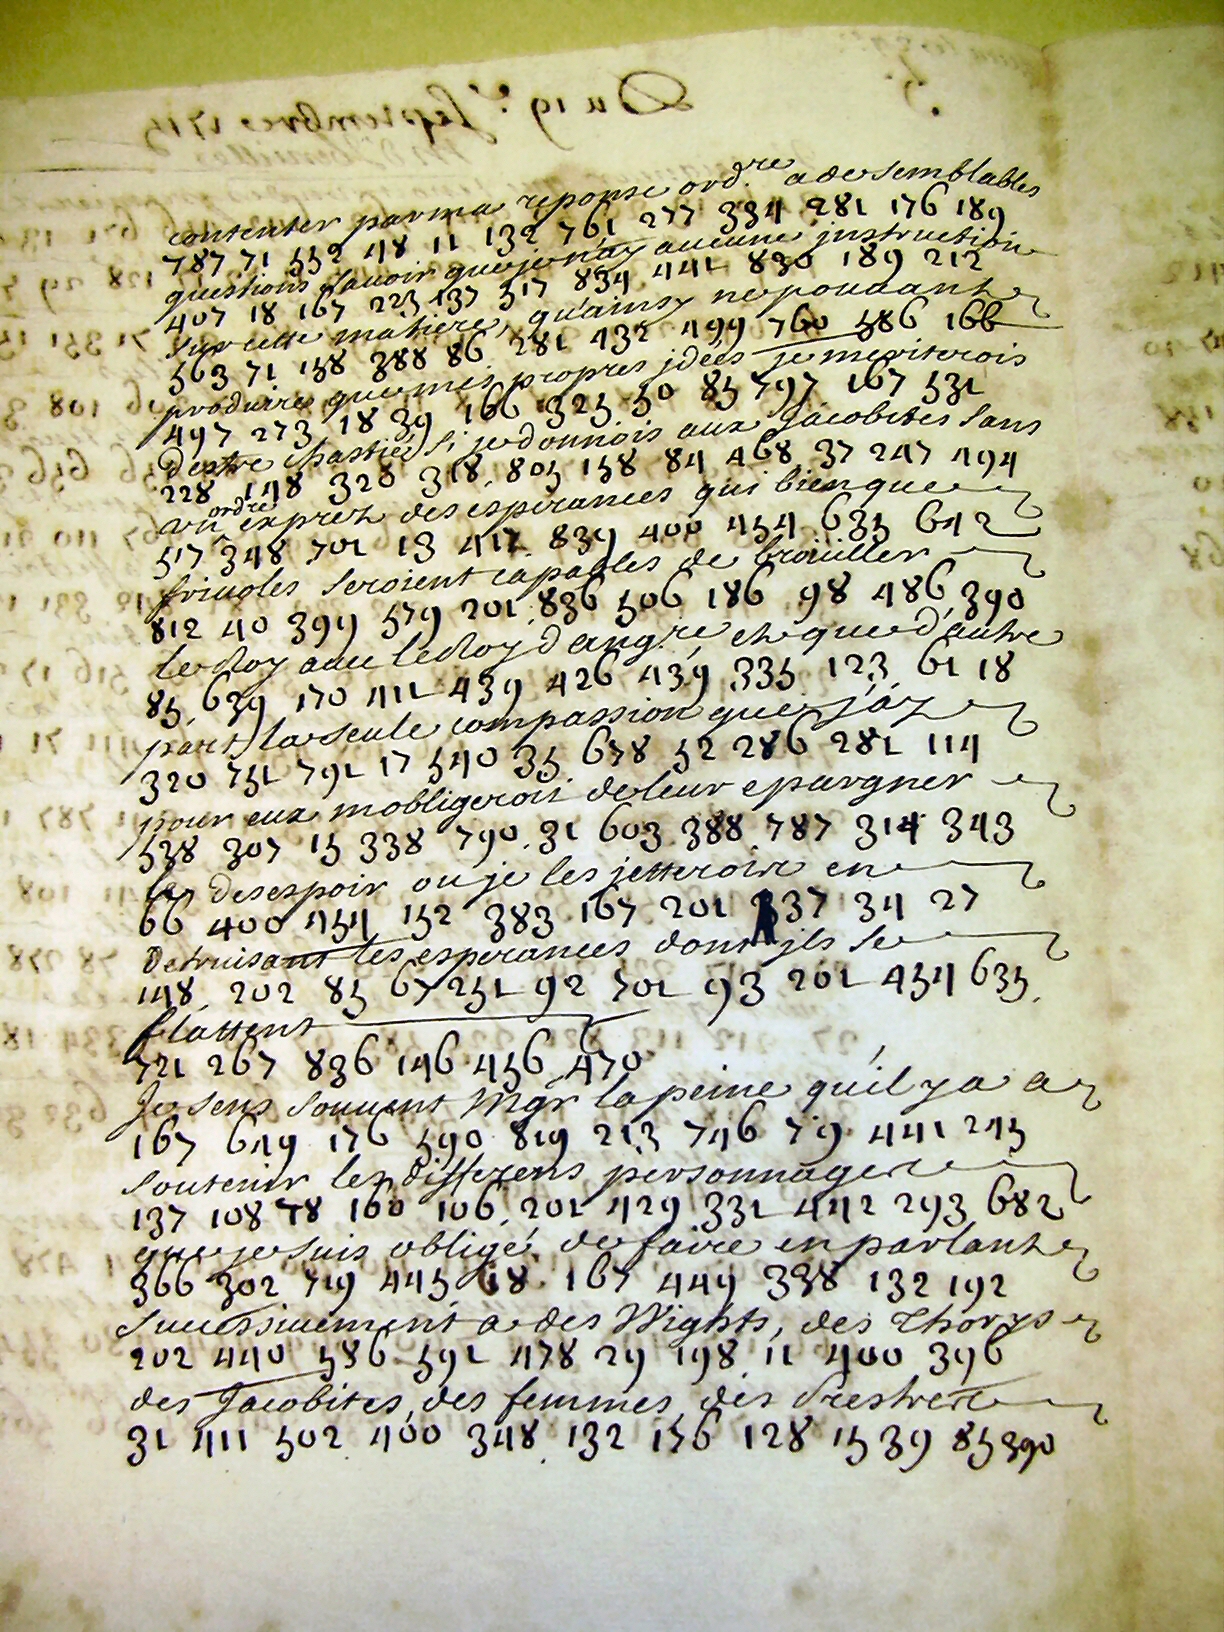 contenter par ma reponse ord.re a de semblables
787 71 552 48 11 132 761 277 334 281 176 189
questions Savoir que je n'ay aucune instruction
407 18 167 223 137 517 834 441 830 189 212
Sur cette matiere, qu'ainsy ne pouuant
563 71 158 388 86 281 432 499 760 586 166
produire que mes propres idées je meriterois
497 273 18 39 166 325 50 85 797 167 531
destre chastié Si je donnois aux Jacobites Sans
228 148 328 318 805 158 84 468 37 247 494
un ordre exprez des esperances qui bien que
517 348 701 13 417 839 400 454 635 642
friuoles Seroient capables de broüiller
812 40 399 579 201 836 506 186 98 486 390
le Roy auec le Roy d'angre, et que d'autre
85 639 170 411 439 426 439 335 123 61 18
part la Seule compassion que j'ay
320 751 791 17 540 35 678 52 286 281 114
pour eux m'obligeroit de leur epargner
538 307 15 338 790 31 603 388 787 314 343
le desespoir ou je les jetterois en
66 400 454 152 383 167 201 337 34 27
detruisant les esperances dont jls Se
148 202 85 67 251 92 701 93 201 454 635
flattent
721 267 836 146 456 470
Je Sens Souuent Mgr la peine qu'il y a a
167 649 176 590 819 213 746 79 441 245
Soutenir les differens personnages
137 108 78 160 106 201 429 331 442 293 682
que je Suis obligé de faire en parlant
366 302 719 445 18 167 449 338 132 192
Successiuement a des Wights, des Thorys
202 440 586 591 478 29 198 11 400 396
des Jacobites, des femmes, des Prestres
31 411 502 400 348 132 156 128 15 39 85 390